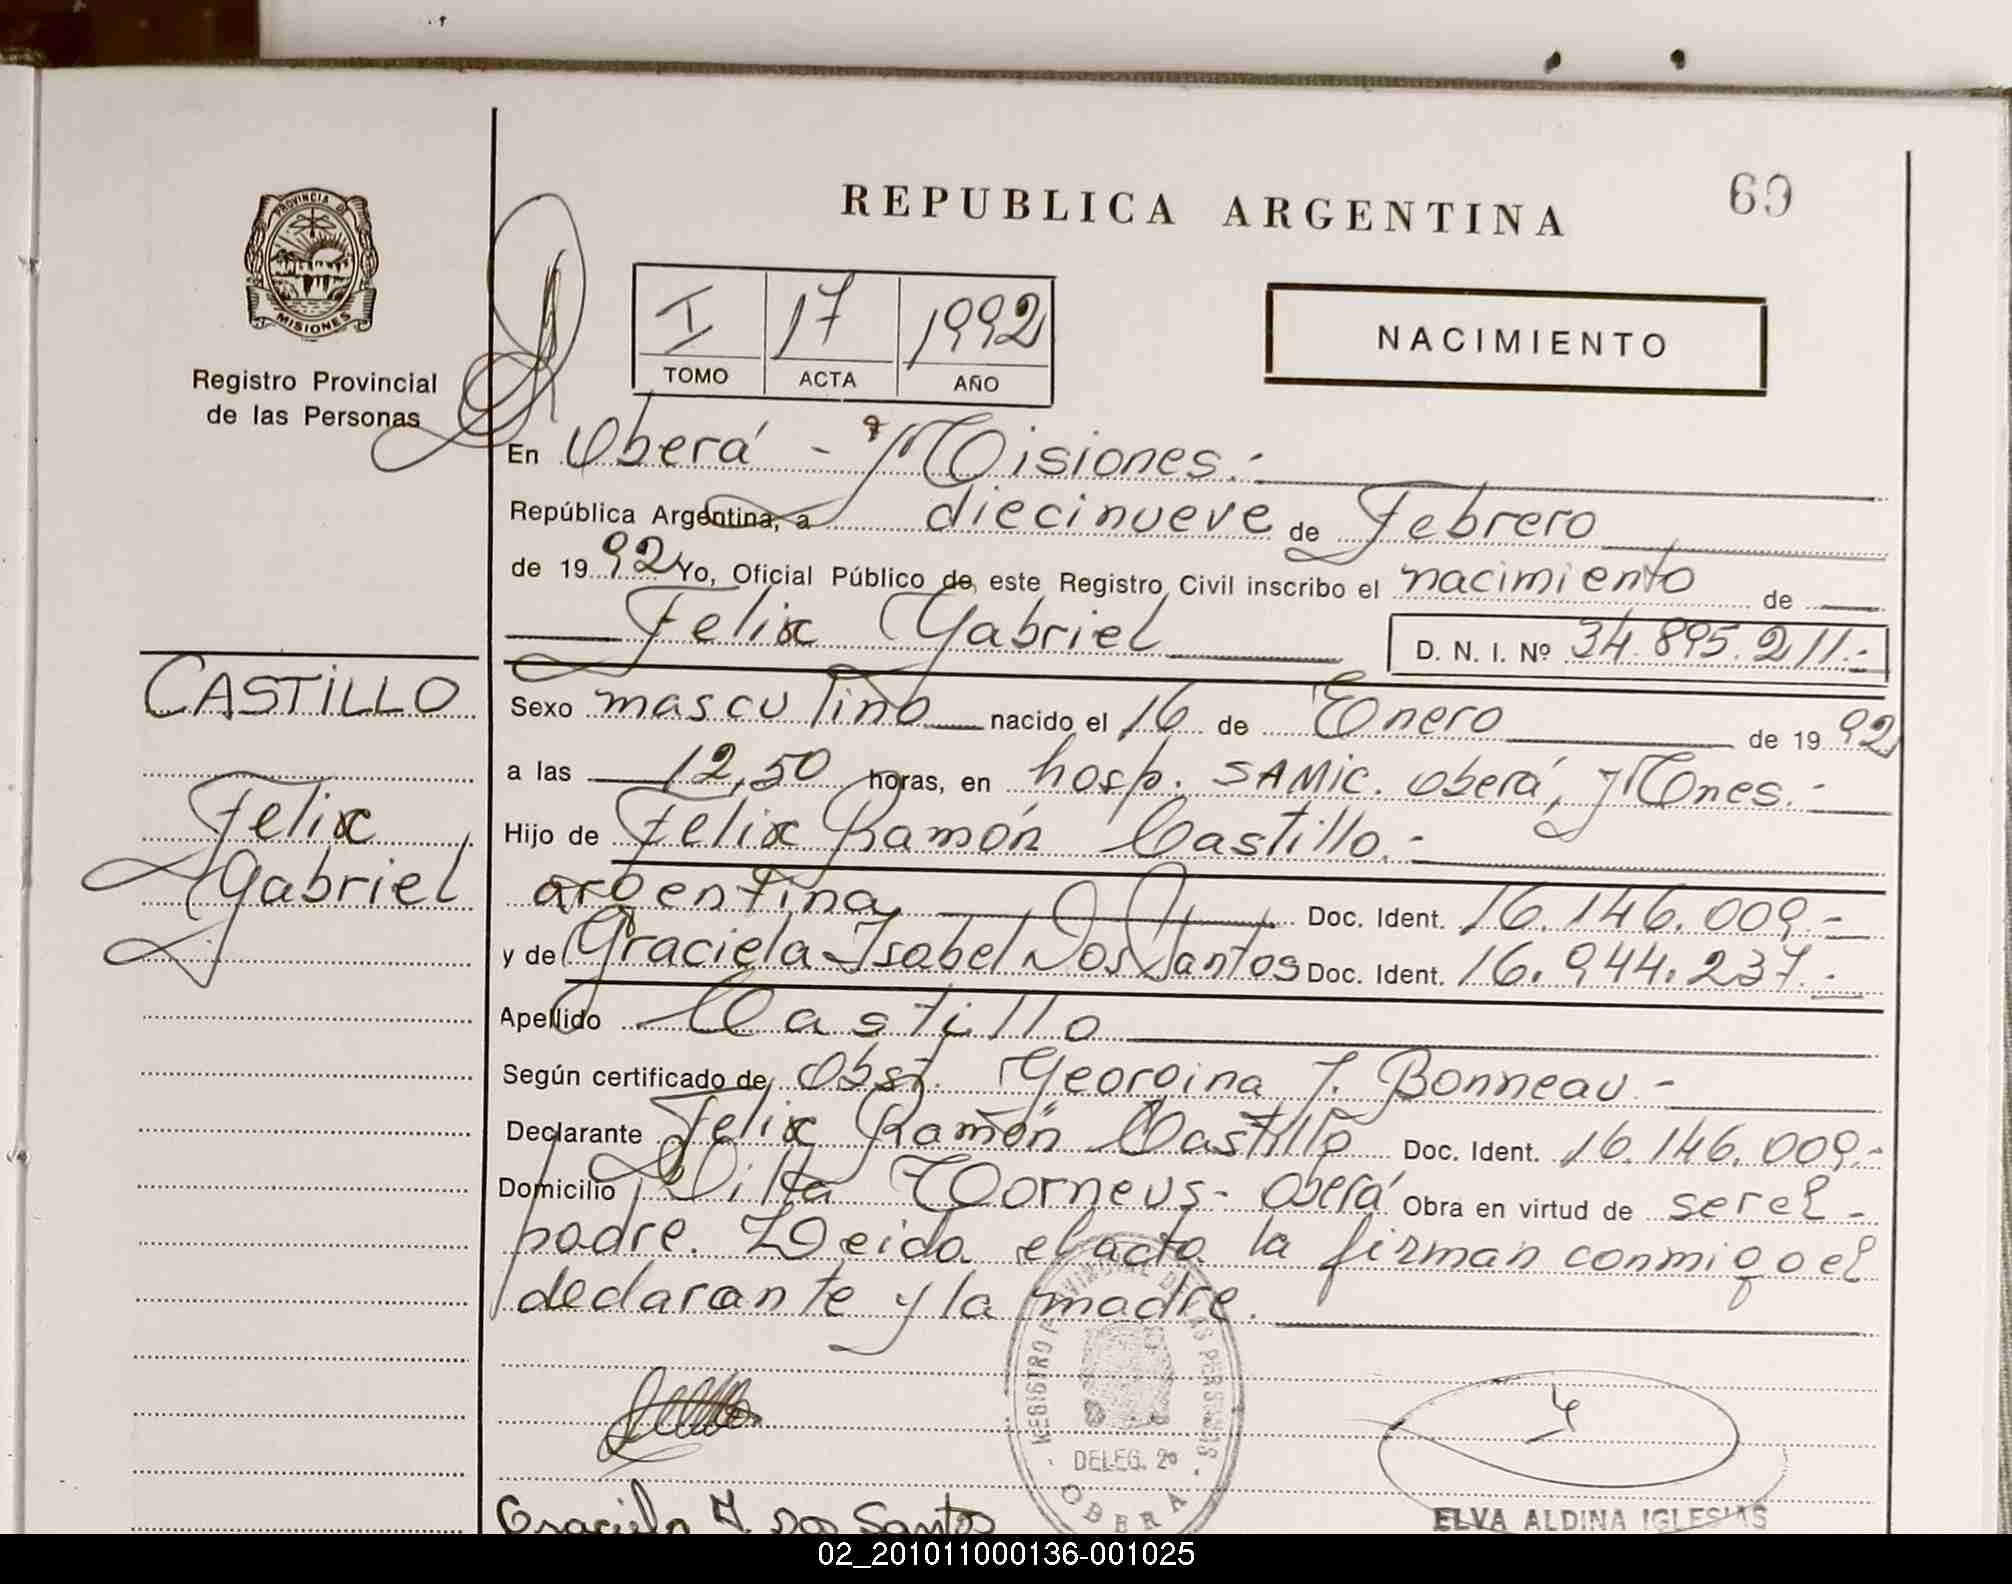 REPUBLICA ARGENTINA
69
PROVINCIA DE
MISIONES
Registro Provincial
de las Personas
I 17 1992
TOMO ACTA AÑO
NACIMIENTO
En Oberá - Misiones.-
República Argentina, a diecinueve de Febrero
de 1992 Yo, Oficial Público de este Registro Civil inscribo el nacimiento de
Felix Gabriel D. N. I. Nº 34.895.211.-
CASTILLO
Felix
Gabriel
Sexo masculino nacido el 16 de Enero de 1992
a las 12,50 horas, en hosp. SAMIC. Oberá, Mnes.-
Hijo de Felix Ramón Castillo.-
argentina Doc. Ident. 16.146.009.-
y de Graciela Isabel Dos Santos Doc. Ident. 16.944.237.-
Apellido Castillo
Según certificado de Obst. Georgina J. Bonneau.-
Declarante Felix Ramón Castillo Doc. Ident. 16.146.009.-
Domicilio Villa Oberá Obra en virtud de ser el
padre. Leida el acta la firman conmigo el
declarante y la madre.
REGISTRO PROVINCIAL DE LAS PERSONAS
DELEG. 2º
OBERA
Graciela I. Dos Santos
ELVA ALDINA IGLESIAS
02_201011000136-001025